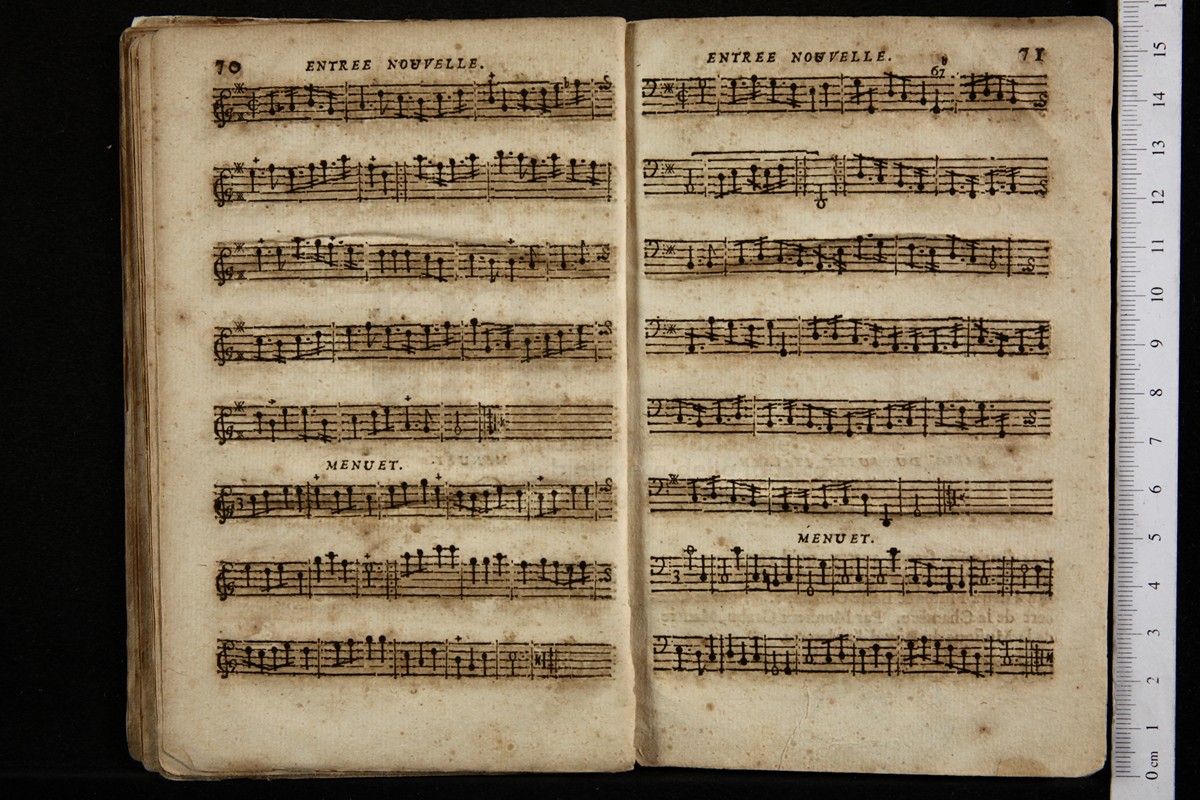 70
ENTREE NOUVELLE.
MENUET.
ENTREE NOUVELLE.
71
67
8
MENUET.
15
14
13
12
11
10
9
8
7
6
5
4
3
2
1
0 cm